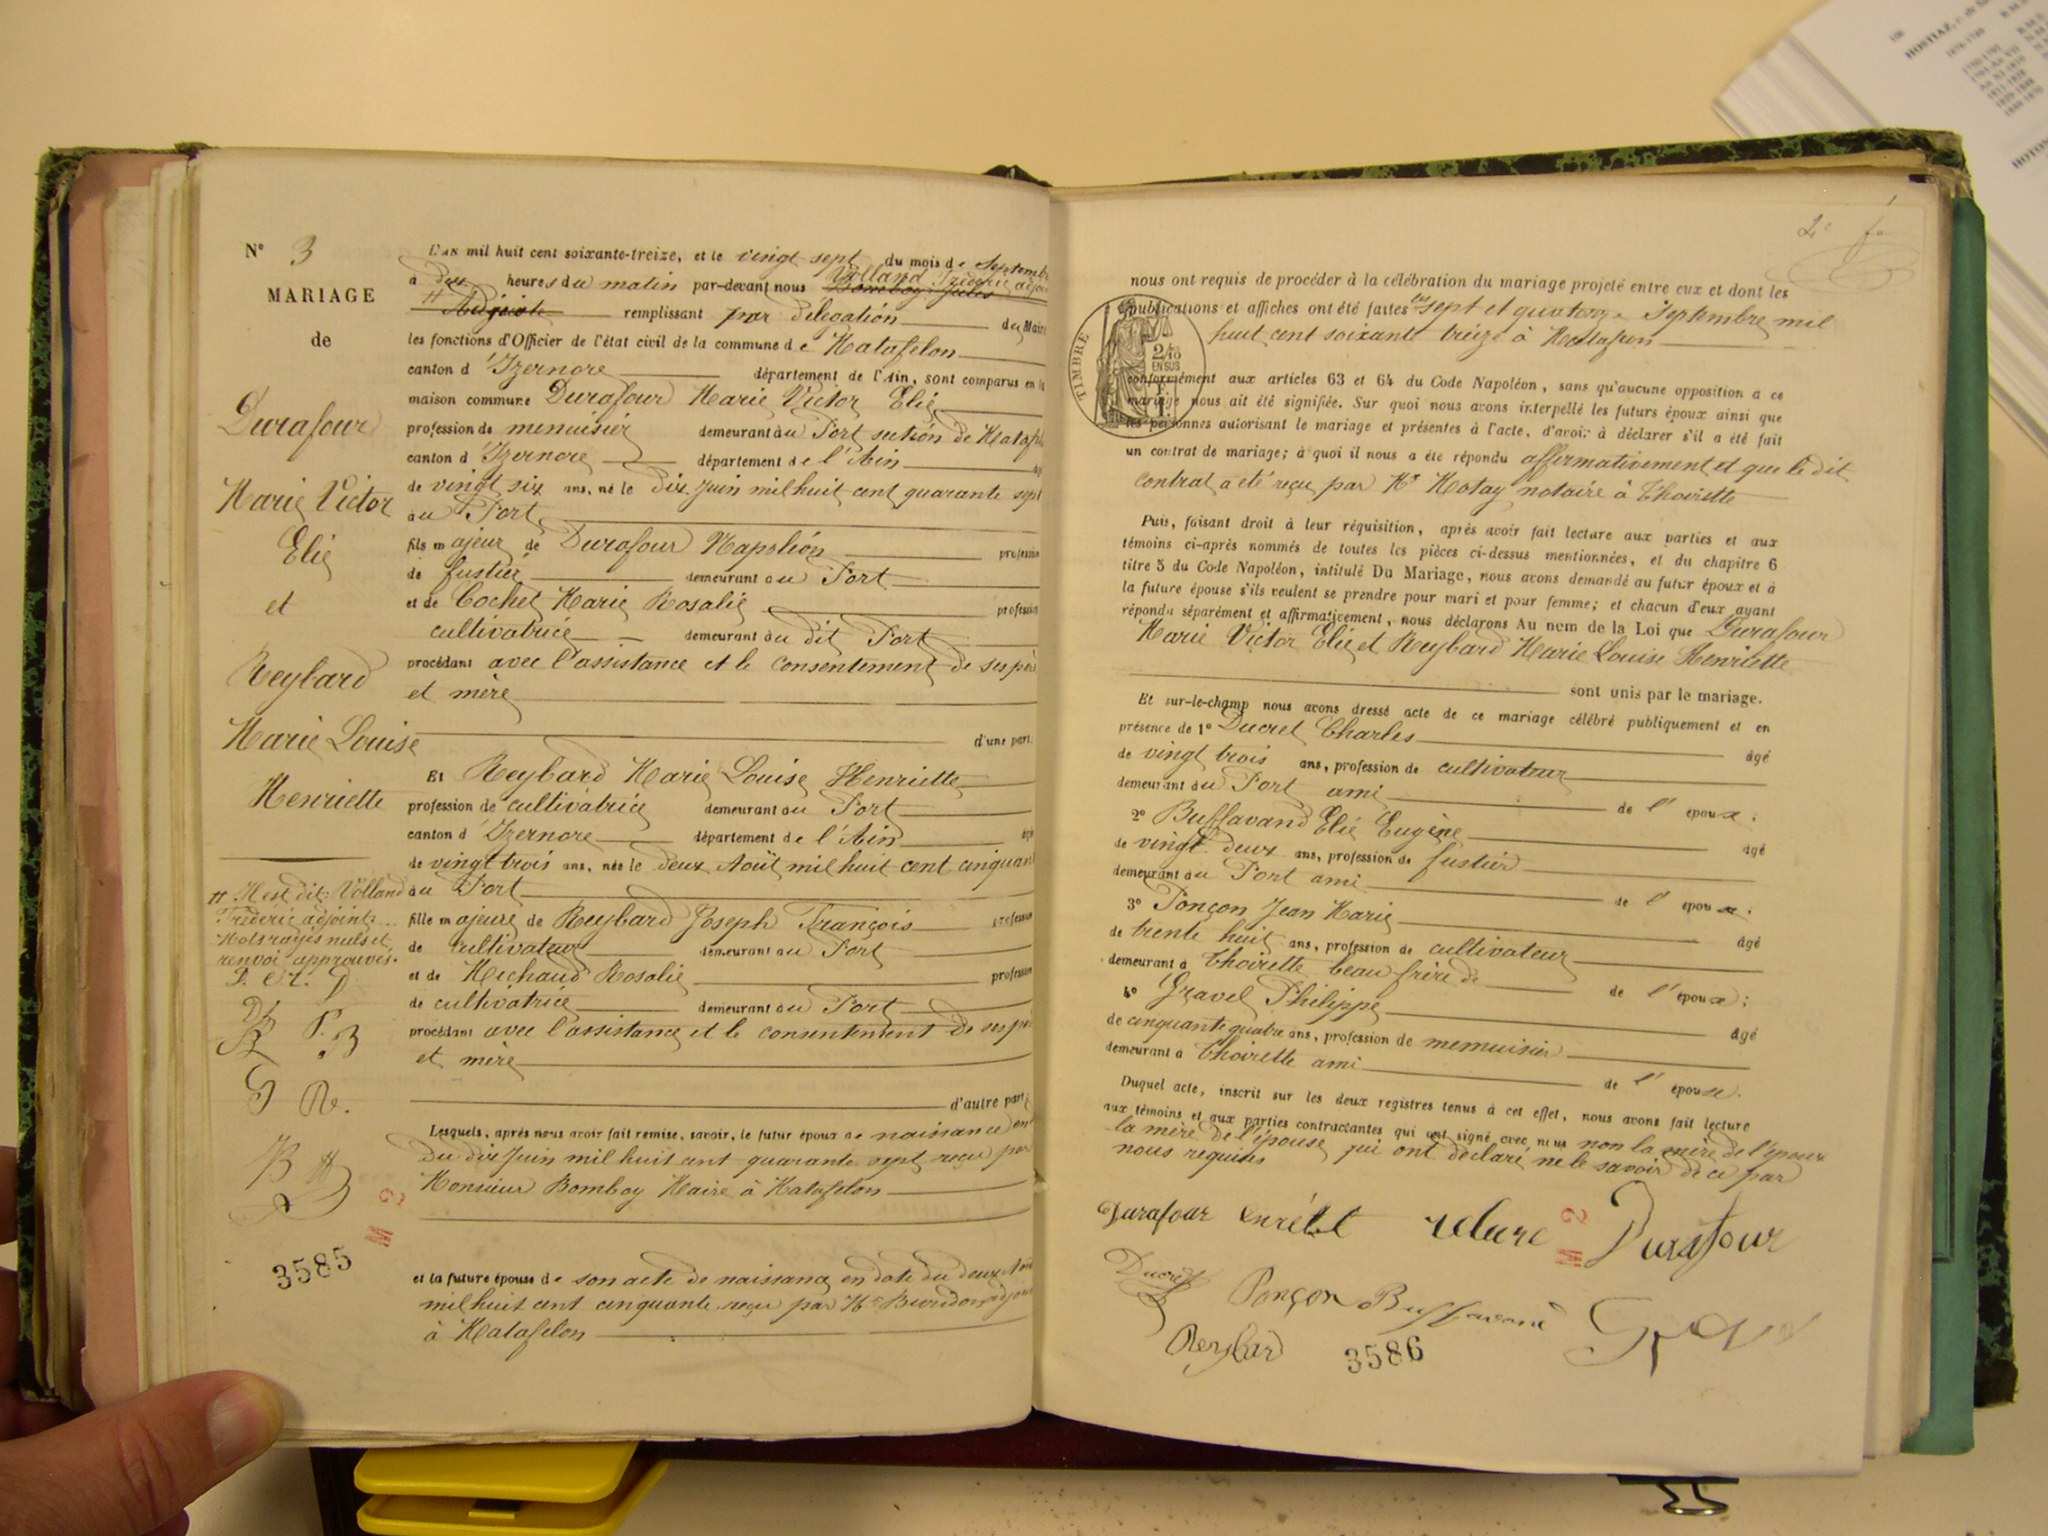 N° 3
MARIAGE
de
Durafour
Marie Victor
Elie
et
Reybard
Marie Louise
Henriette
tt Il est dit: Volland
Fréderic adjoint
Mots rayés nuls et
renvoi approuvés.
P. B
G R.
3585
L'AN mil huit cent soixante-treize, et le vingt sept du mois de Septembre
à dix heures du matin par-devant nous Bomboy Jules Volland Fréderic adjoint
tt Adjoint remplissant par délégation du Maire
les fonctions d'Officier de l'état civil de la commune de Matafelon
canton d'Izernore département de l'Ain, sont comparus en la
maison commune Durafour Marie Victor Elie
profession de menuisier demeurant au Port section de Mataf
canton d'Izernore département de l'Ain
de vingt six ans, né le dix Juin mil huit cent quarante sept
au Port
fils majeur de Durafour Napoléon profession
de fustier demeurant au Port
et de Cochet Marie Rosalie profession
cultivatrice demeurant au dit Port
procédant avec l'assistance et le consentement de ses père
et mère
d'une part.
Et Reybard Marie Louise Henriette
profession de cultivatrice demeurant au Port
canton d'Izernore département de l'Ain âgé
de vingt trois ans, née le deux Août mil huit cent cinquante
au Port
fille majeure de Reybard Joseph François profession
de cultivateur demeurant au Port
et de Michaud Rosalie profession
de cultivatrice demeurant au Port
procédant avec l'assistance et le consentement de ses père
et mère
d'autre part;
Lesquels, après nous avoir fait remise, savoir, le futur époux de naissance en
du dix Juin mil huit cent quarante sept reçu par
Monsieur Bomboy Maire à Matafelon
et la future épouse de son acte de naissance en date du deux Août
mil huit cent cinquante reçu par Mr Burdon adjoint
à Matafelon
2e fo
nous ont requis de procéder à la célébration du mariage projeté entre eux et dont les
publications et affiches ont été faites les sept et quatorze Septembre mil
huit cent soixante treize à Matafelon
TIMBRE
2/10
EN SUS
conformément aux articles 63 et 64 du Code Napoléon, sans qu'aucune opposition à ce
mariage nous ait été signifiée. Sur quoi nous avons interpellé les futurs époux ainsi que
les personnes autorisant le mariage et présentes à l'acte, d'avoir à déclarer s'il a été fait
un contrat de mariage; à quoi il nous a été répondu affirmativement et que le dit
contrat a été reçu par Me Motay notaire à Thoirette
Puis, faisant droit à leur réquisition, après avoir fait lecture aux parties et aux
témoins ci-après nommés de toutes les pièces ci-dessus mentionnées, et du chapitre 6
titre 5 du Code Napoléon, intitulé Du Mariage, nous avons demandé au futur époux et à
la future épouse s'ils veulent se prendre pour mari et pour femme; et chacun d'eux ayant
répondu séparément et affirmativement, nous déclarons Au nom de la Loi que Durafour
Marie Victor Elie et Reybard Marie Louise Henriette
sont unis par le mariage.
Et sur-le-champ nous avons dressé acte de ce mariage célébré publiquement et en
présence de 1° Ducret Charles âgé
de vingt trois ans, profession de cultivateur
demeurant au Port ami de l'époux;
2° Buffavand Elie Eugène âgé
de vingt deux ans, profession de fustier
demeurant au Port ami de l'époux;
3° Ponçon Jean Marie âgé
de trente huit ans, profession de cultivateur
demeurant à Thoirette beau frère de de l'épouse;
4° Gravel Philippe âgé
de cinquante quatre ans, profession de menuisier
demeurant à Thoirette ami de l'épouse.
Duquel acte, inscrit sur les deux registres tenus à cet effet, nous avons fait lecture
aux témoins et aux parties contractantes qui ont signé avec nous non la mère de l'époux
la mère de l'épouse qui ont déclaré ne le savoir de ce par
nous requises
Durafour Durafour
Ducret Ponçon Buffavand
Reybard 3586